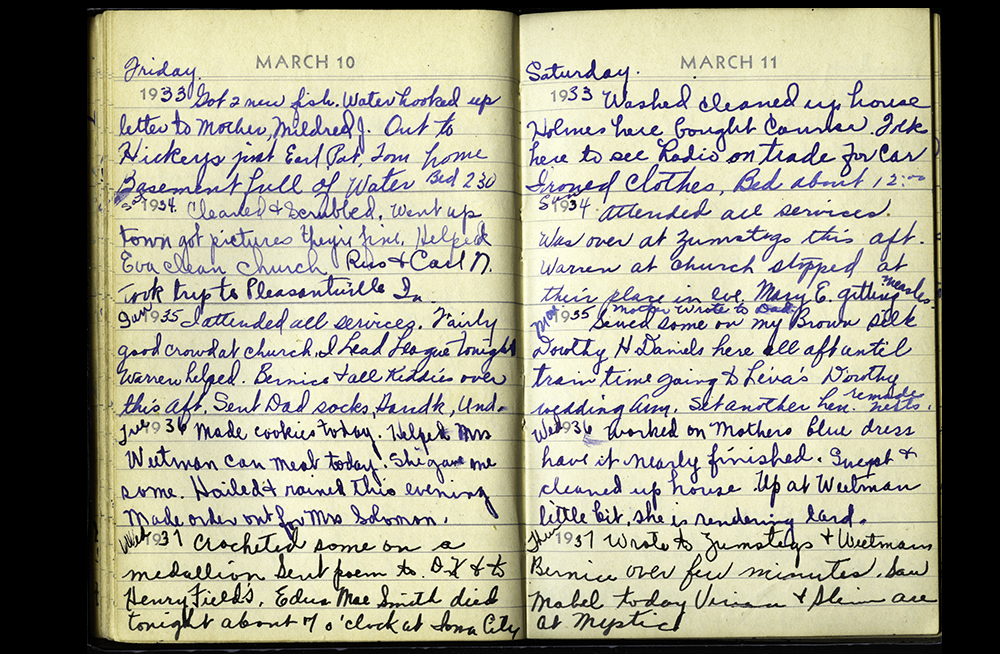 MARCH 10
Friday.
1933 Got 2 new fish. Water hooked up
letter to Mother, Mildred J. Out to
Hickeys just Earl, Pat, Tom home
Basement full of Water Bed 2 30
Sat 1934. Cleaned & Scrubbed. Went up
town got pictures they're fine. Helped
Eva clean church. Russ & Carl N.
Took trip to Pleasantville Ia
Sun 1935 I attended all services. Fairly
good crowd at church. I Lead League tonight
Warren helped. Bernice & all Kiddies over
this aft. Sent Dad socks, Handk, Und.
Tue 1936 Made cookies today. Helped Mrs
Weetman can meat today. She gave me
some. Hailed & rained this evening
Made order out for Mrs Solomon.
Wed 1937 Crocheted some on a
medallion Sent poem to. O.K & to
Henry Field's. Edna Mae Smith died
tonight about 7 o'clock at Iowa City
MARCH 11
Saturday.
1933 Washed cleaned up house
Holmes here bought Folks
here to see Radio on trade for Car
Ironed Clothes, Bed about 12:00
Sun 1934. Attended all services.
Was over at Zumstegs this aft.
Warren at church stopped at
their place in eve. Mary E. getting measles.
Mon 1935 Mother wrote to Dad.
Sewed some on my Brown silk
Dorothy H Daniels here all aft until
train time going to Leva's Dorothy
wedding Ann. Set another hen. remade nests.
Wed 1936 Worked on Mothers blue dress
have it nearly finished. Swept &
cleaned up house Up at Weetman
little bit, she is rendering lard.
Thur 1937 Wrote to Zumstegs & Weetmans
Bernice over few minutes. Saw
Mabel today Vivian & Slim are
at Mystic